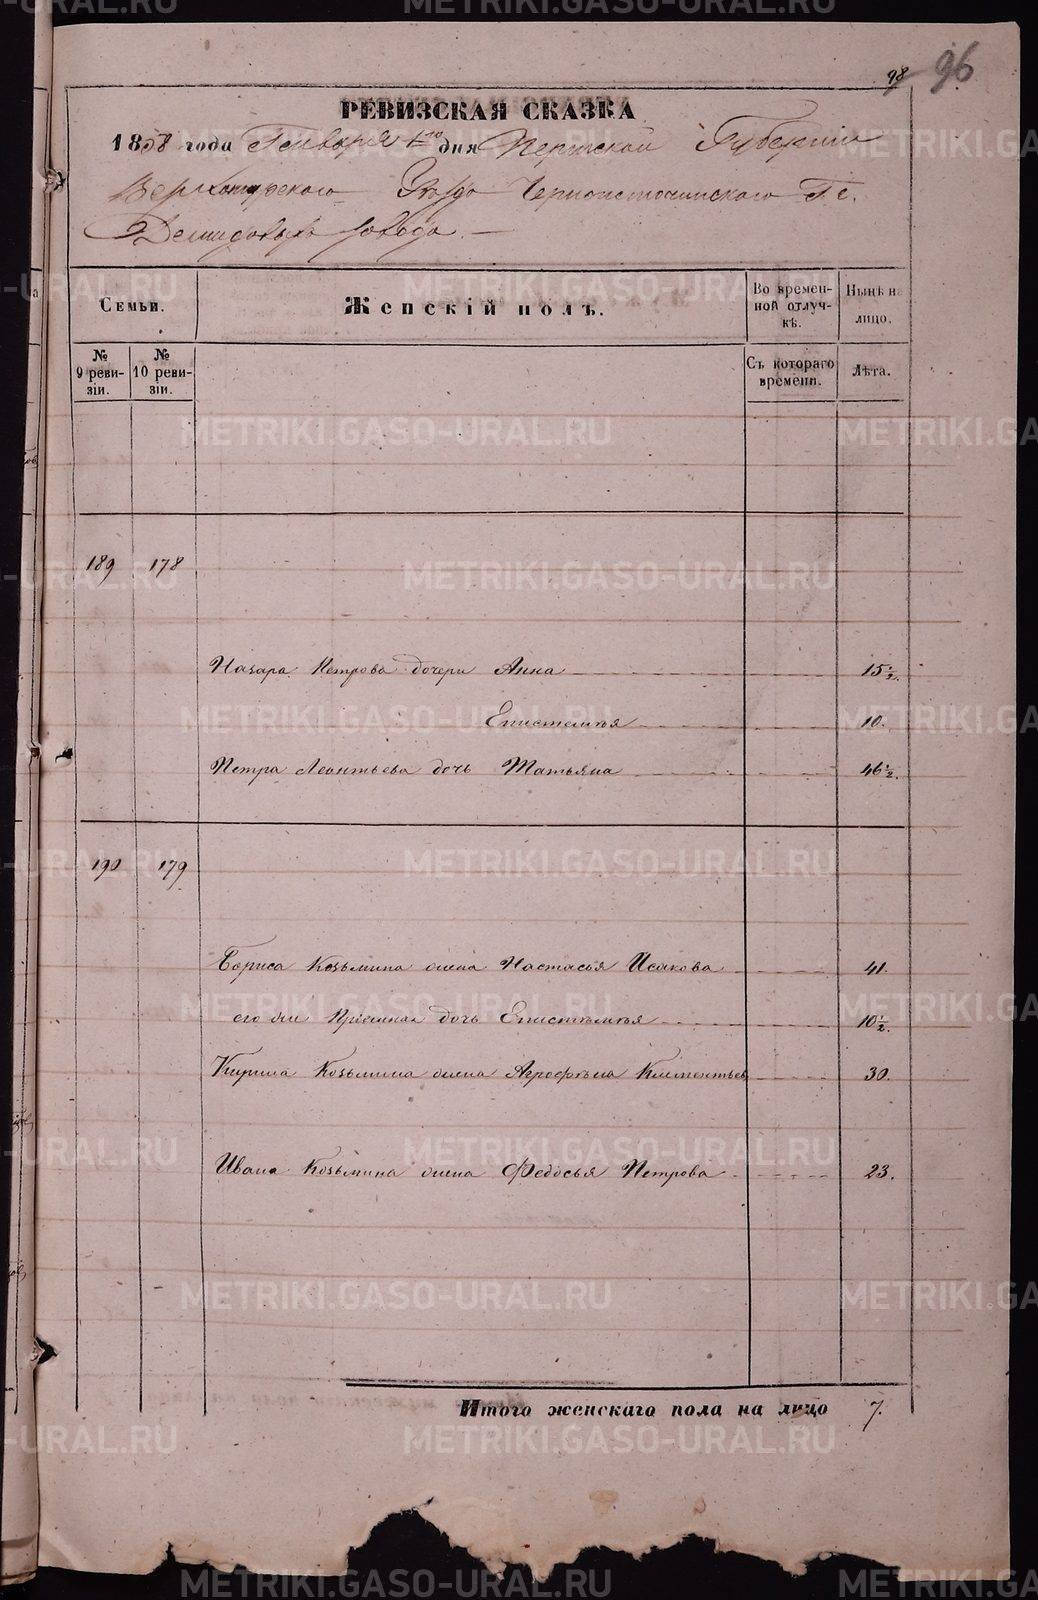 98 96
РЕВИЗСКАЯ СКАЗКА
1858 года Генваря 1го дня Пермской Губернии
Верхотурского Уезда Черноисточинского Гг.
Демидовыхъ завода.
Семьи.
Женскій полъ.
Во времен-
ной отлуч-
кѣ.
Нынѣ на
лицо.
№
9 реви-
зіи.
№
10 реви-
зіи.
Съ котораго
времени.
Лѣта.
189 178
Назара Петрова дочери Анна 15 1/2.
Епистемья 10.
Петра Леонтьева дочь Татьяна 46 1/2.
190 179
Бориса Козьмина жена Настасья Исакова 41.
его же Приемная дочь Епистемья 10 1/2.
Кирила Козьмина жена Агрофѣна Климентьев 30.
Ивана Козьмина жена Федосья Петрова 23.
Итого женскаго пола на лицо 7.
METRIKI.GASO-URAL.RU